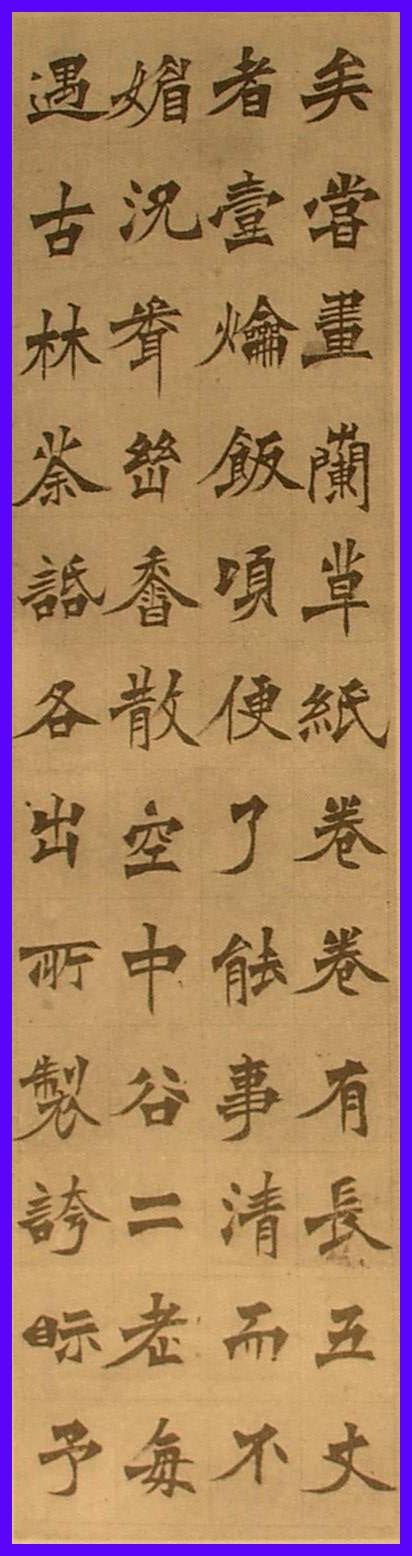 矣嘗畫蘭草紙卷卷有長五丈
者壹爚飯頃便了能事清而不
媚況䎽幽香散空中谷二老每
遇古林荼話各出所製誇眎予